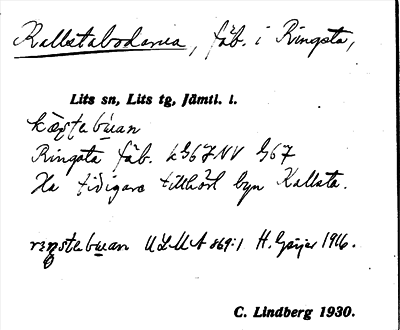 Kallstabodarna, fäb. i Ringsta,
Lits sn, Lits tg, Jämtl. l.
Ringsta fäb. LG67NV G67
Ha tidigare tillhört byn Kallsta.
ULMA 869:1 H. Geijer 1916.
C. Lindberg 1930.